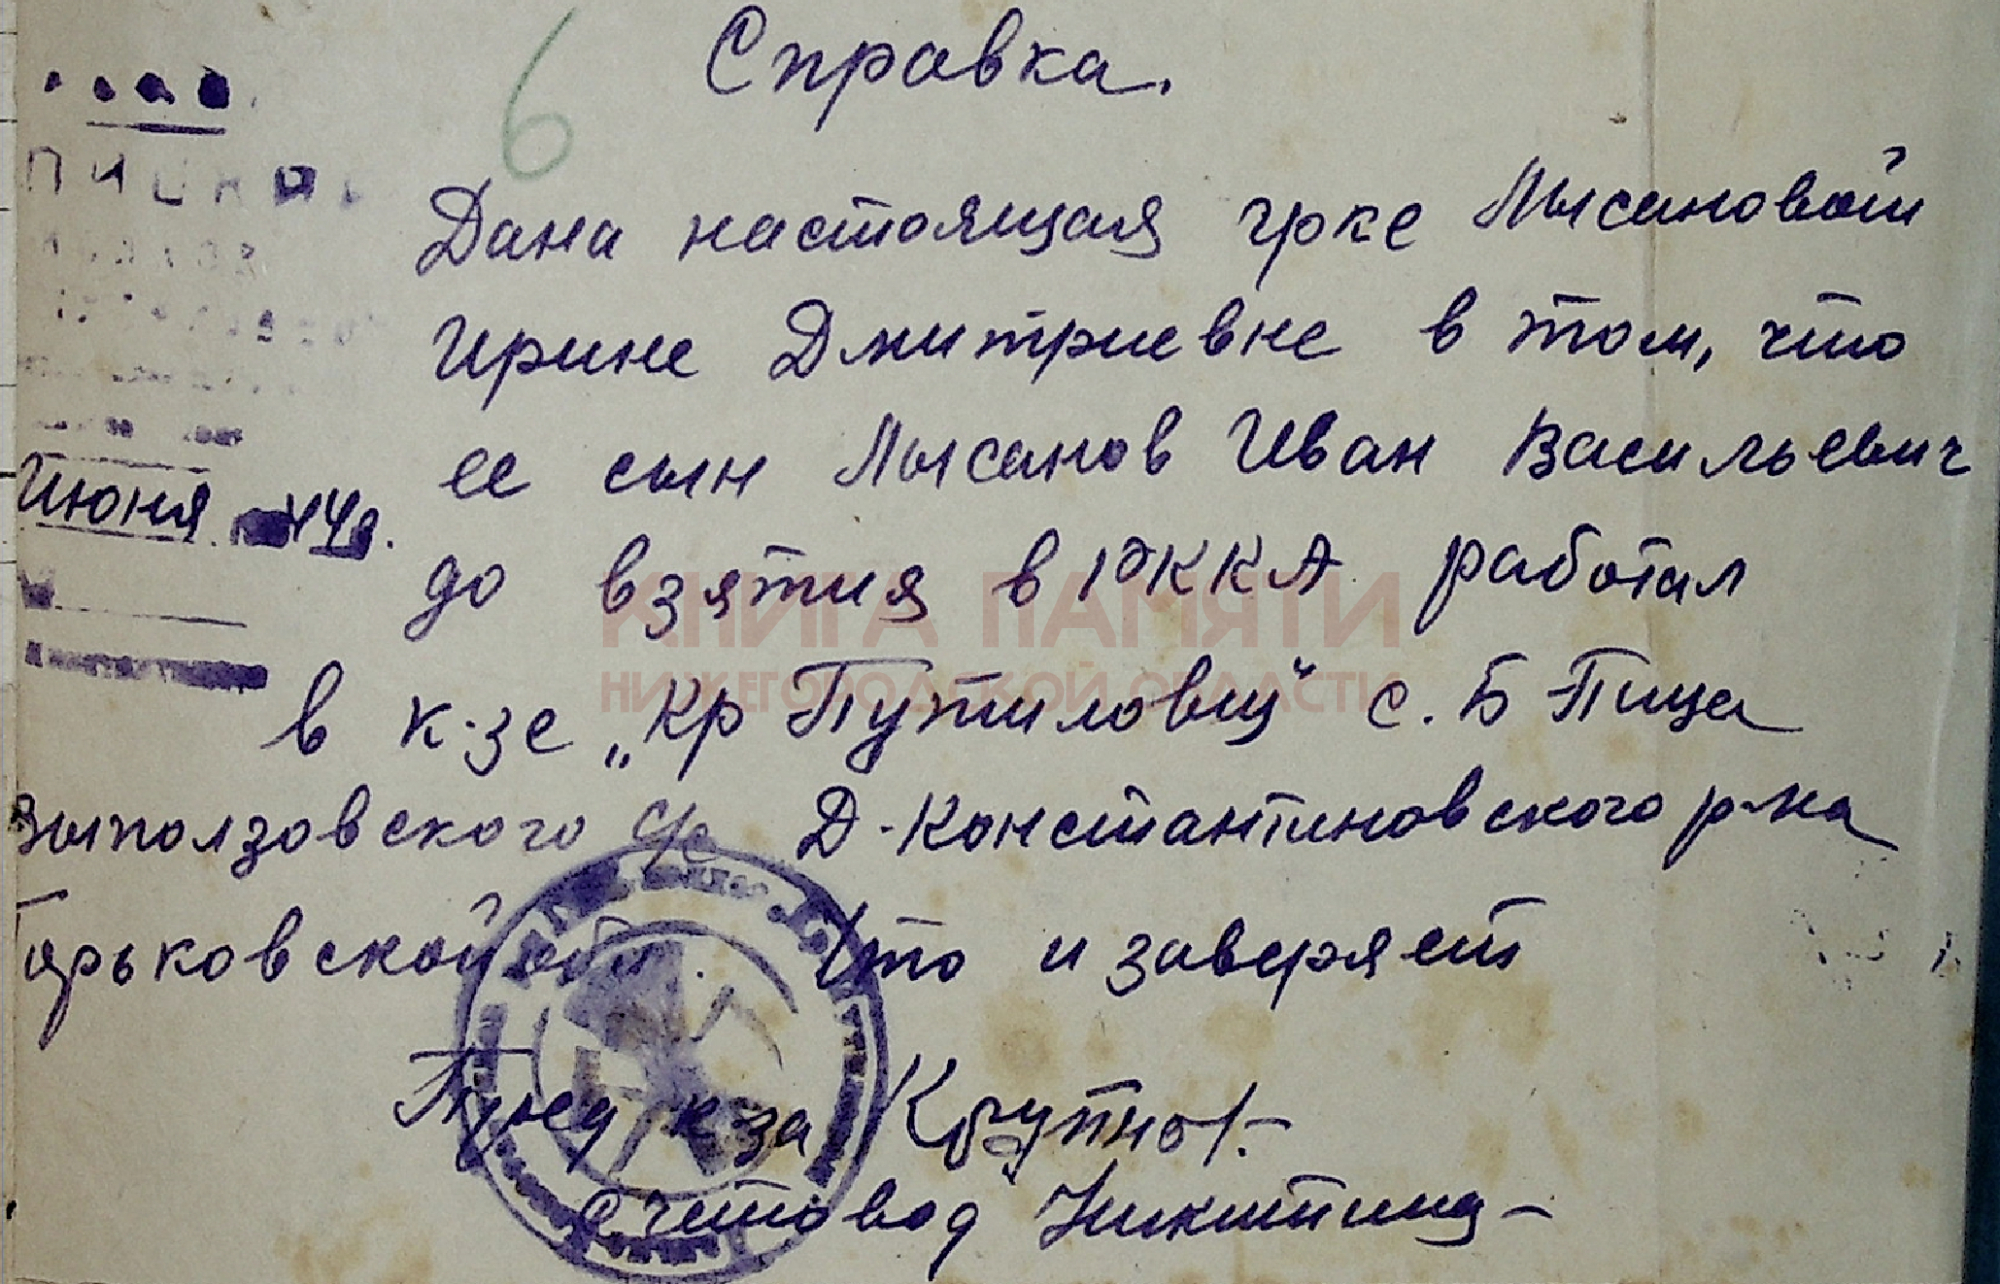 6
Справка.
Дана настоящая гр-ке Лысановой
Ирине Дмитриевне в том, что
ее сын Лысанов Иван Васильевич
до взятия в РККА работал
в к-зе „Кр Путиловец" с. Б-Пица
Выползовского с/с Д-Константиновского р-на
Горьковской обл. Что и заверяет
Пред к-за
Счетовод Никитина
Июня 44г.
КНИГА ПАМЯТИ
НИЖЕГОРОДСКОЙ ОБЛАСТИ